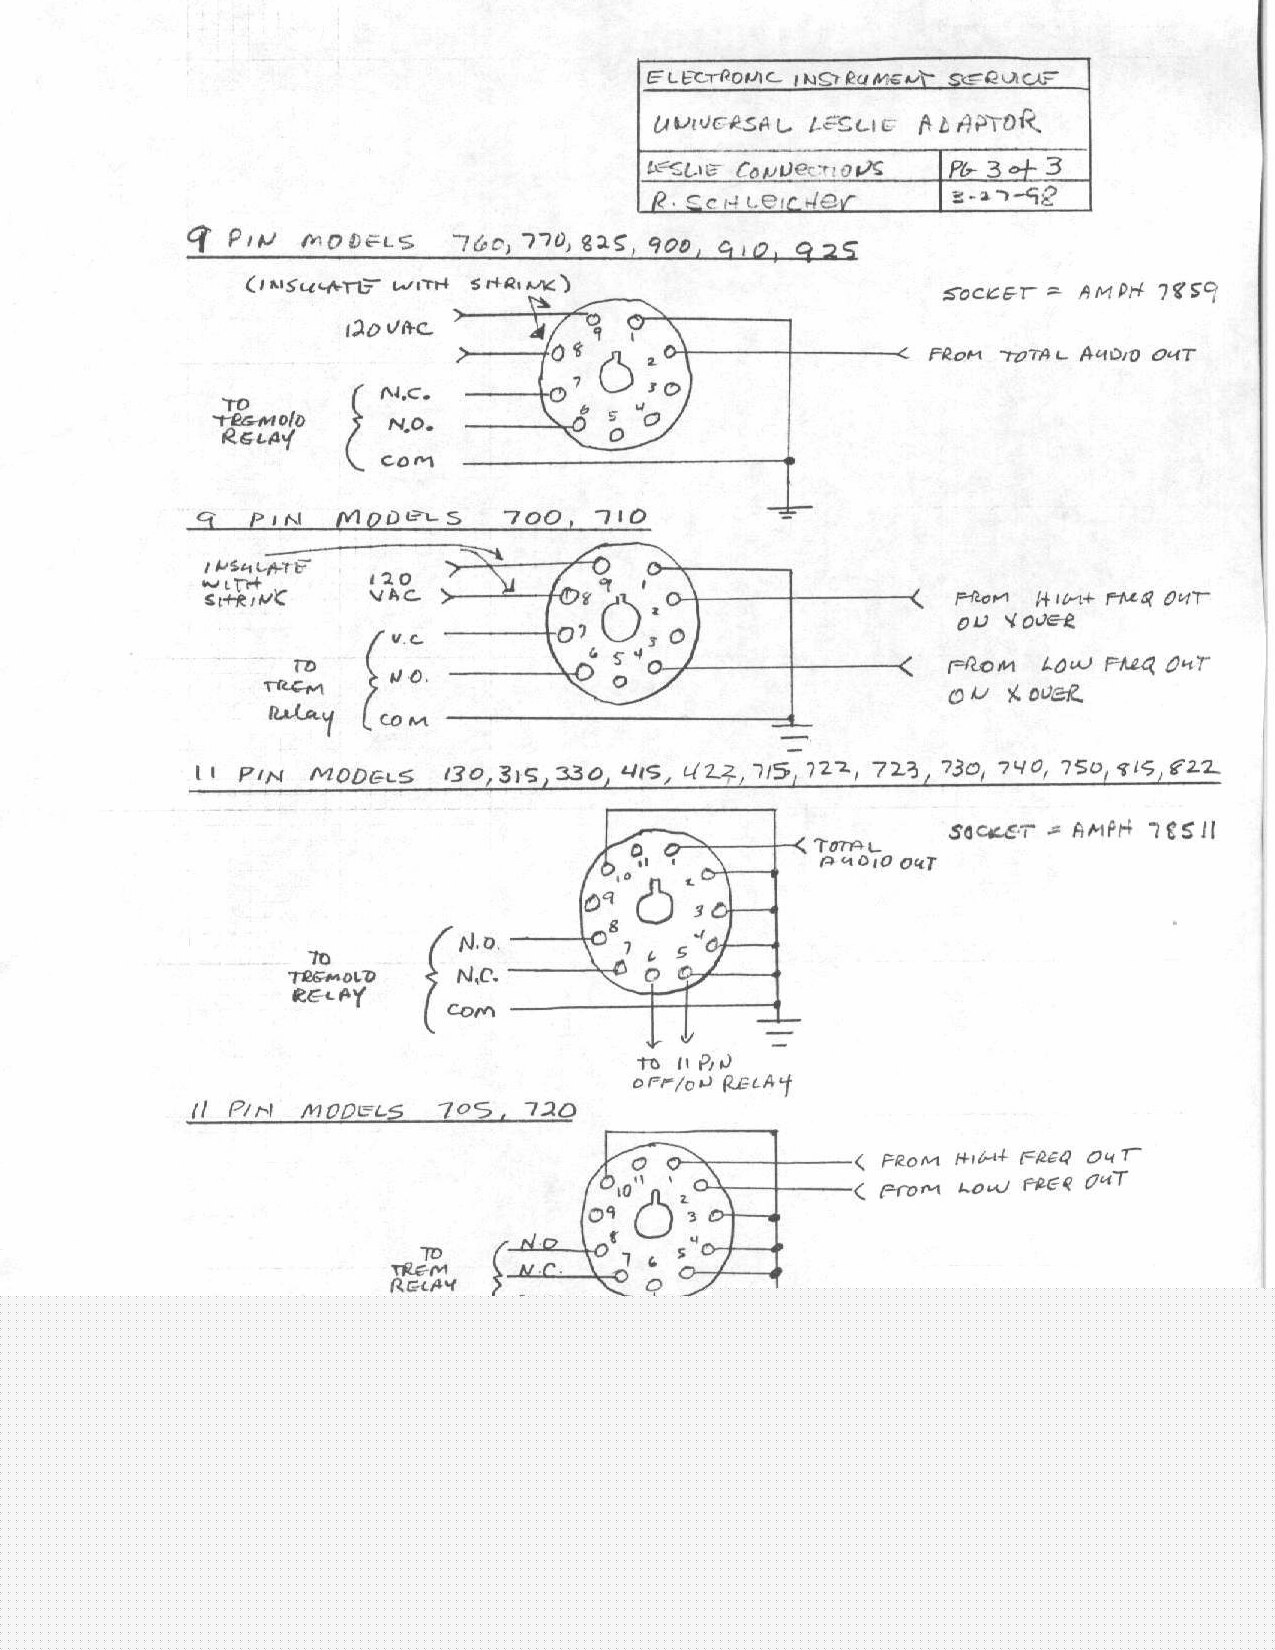 ELECTRONIC INSTRUMENT SERVICE
UNIVERSAL LESLIE ADAPTOR
LESLIE CONNECTIONS
PG 3 of 3
R. SCHLEICHER
3-27-98
9 PIN MODELS 760, 770, 825, 900, 910, 925
(INSULATE WITH SHRINK)
SOCKET = AMPH 7859
120 VAC
FROM TOTAL AUDIO OUT
TO
TREMOLO
RELAY
N.C.
N.O.
COM
1
2
3
4
5
6
7
8
9
9 PIN MODELS 700, 710
INSULATE
WITH
SHRINK
120
VAC
FROM HIGH FREQ OUT
ON XOVER
FROM LOW FREQ OUT
ON XOVER
TO
TREM
Relay
N.C
N O.
COM
1
2
3
4
5
6
7
8
9
11 PIN MODELS 130, 315, 330, 415, 422, 715, 722, 723, 730, 740, 750, 815, 822
SOCKET = AMPH 78511
TOTAL
AUDIO OUT
TO
TREMOLO
RELAY
N.O.
N.C.
COM
1
2
3
4
5
6
7
8
9
10
11
TO 11 PIN
OFF/ON RELAY
11 PIN MODELS 705, 720
FROM HIGH FREQ OUT
FROM LOW FREQ OUT
TO
TREM
RELAY
N.O
N.C.
1
2
3
4
5
6
7
8
9
10
11